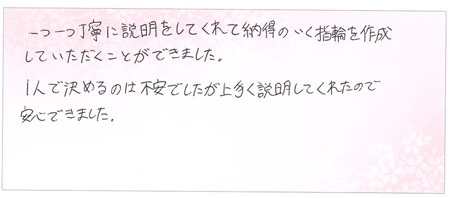 一つ一つ丁寧に説明をしてくれて納得のいく指輪を作成
していただくことができました。
1人で決めるのは不安でしたが上手く説明してくれたので
安心できました。